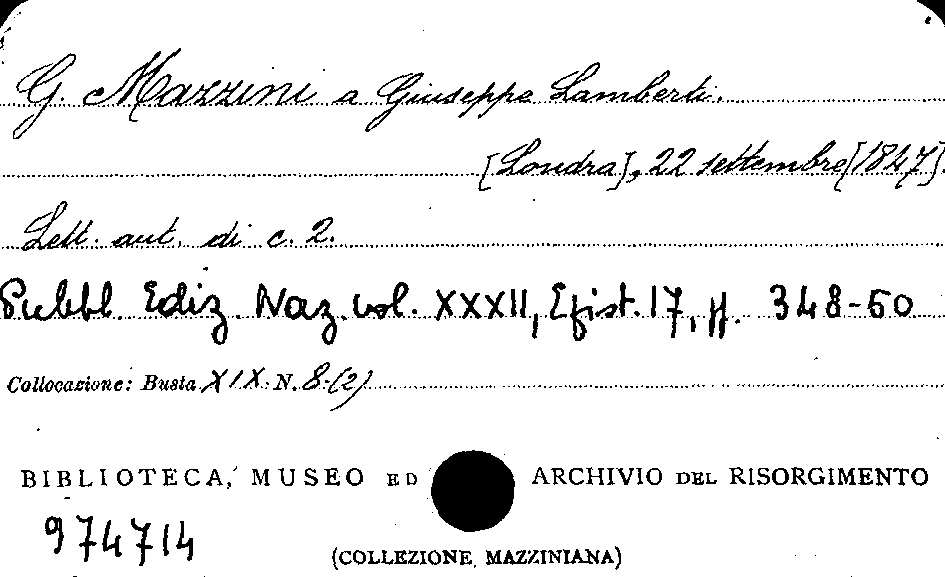 G. Mazzini a Giuseppe Lamberti.
[Londra], 22 settembre [1847].
Lett. aut. di c. 2.
Pubbl. Ediz. Naz. vol. XXXII, Epist. 17, pp. 348-50
Collocazione: Busta XIX N. 8 (2)
BIBLIOTECA, MUSEO ED ARCHIVIO DEL RISORGIMENTO
974714
(COLLEZIONE MAZZINIANA)